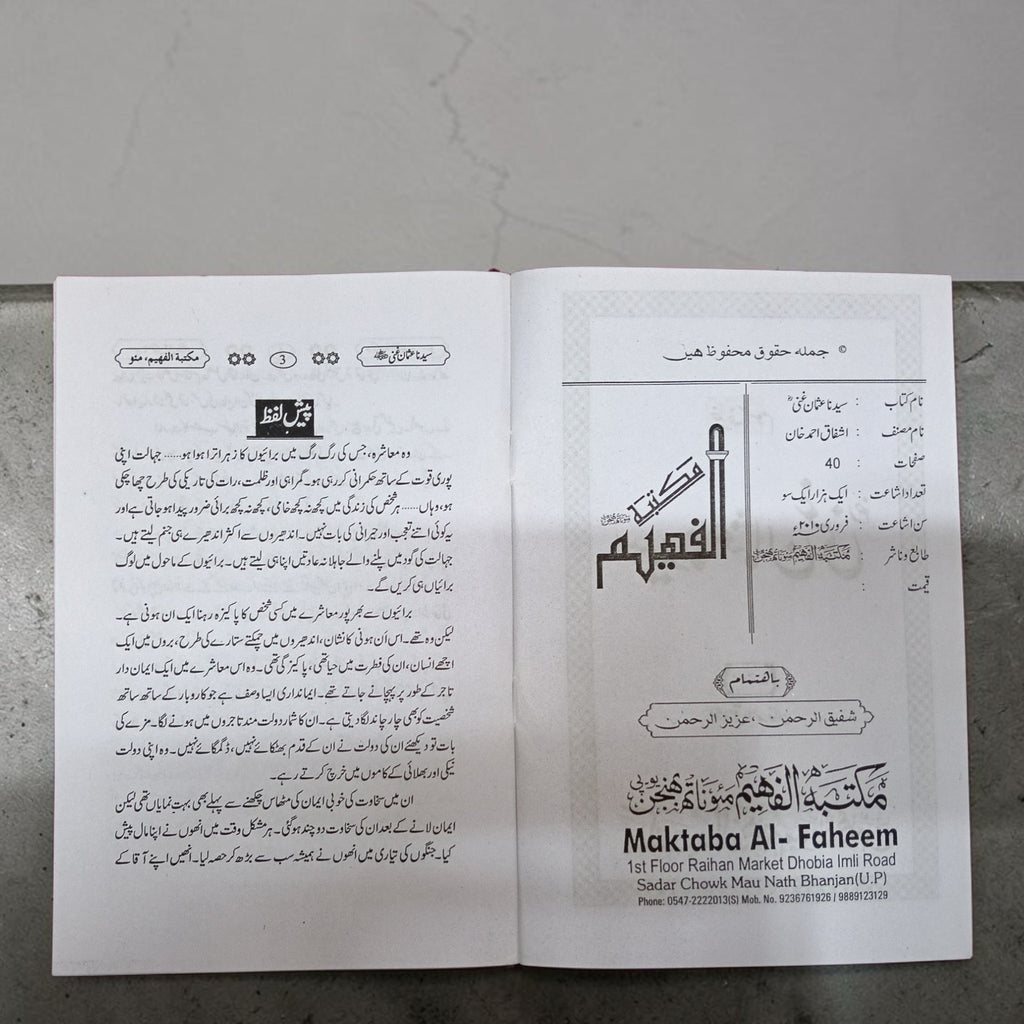 © جملہ حقوق محفوظ ہیں
نام کتاب : سیدنا عثمان غنیؓ
نام مصنف : اشفاق احمد خان
صفحات : 40
تعداد اشاعت : ایک ہزار ایک سو
سن اشاعت : فروری ۲۰۱۰ء
طابع و ناشر : مکتبۃ الفہیم مئوناتھ بھنجن
قیمت :
مکتبۃ
الفہیم
مئوناتھ بھنجن
باہتمام
شفیق الرحمن، عزیز الرحمن
مکتبۃ الفہیم مئوناتھ بھنجن یوپی
Maktaba Al- Faheem
1st Floor Raihan Market Dhobia Imli Road
Sadar Chowk Mau Nath Bhanjan(U.P)
Phone: 0547-2222013(S) Mob. No. 9236761926 / 9889123129
سیدنا عثمان غنیؓ 3 مکتبۃ الفہیم، مئو
پیش لفظ
وہ معاشرہ، جس کی رگ رگ میں برائیوں کا زہر اترا ہوا ہو...... جہالت اپنی
پوری قوت کے ساتھ حکمرانی کر رہی ہو۔ گمراہی اور ظلمت، رات کی تاریکی کی طرح چھا چکی
ہو، وہاں...... ہر شخص کی زندگی میں کچھ نہ کچھ خامی، کچھ نہ کچھ برائی ضرور پیدا ہو جاتی ہے اور
یہ کوئی اتنے تعجب اور حیرانی کی بات نہیں۔ اندھیروں سے اکثر اندھیرے ہی جنم لیتے ہیں۔
جہالت کی گود میں پلنے والے جاہلانہ عادتیں اپنا ہی لیتے ہیں۔ برائیوں کے ماحول میں لوگ
برائیاں ہی کریں گے۔
برائیوں سے بھرپور معاشرے میں کسی شخص کا پاکیزہ رہنا ایک ان ہونی ہے۔
لیکن وہ تھے۔ اس اَن ہونی کا نشان، اندھیروں میں چمکتے ستارے کی طرح، بروں میں ایک
اچھے انسان، ان کی فطرت میں حیا تھی، پاکیزگی تھی۔ وہ اس معاشرے میں ایک ایمان دار
تاجر کے طور پر پہچانے جاتے تھے۔ ایمانداری ایسا وصف ہے جو کاروبار کے ساتھ ساتھ
شخصیت کو بھی چار چاند لگا دیتی ہے۔ ان کا شمار دولت مند تاجروں میں ہونے لگا۔ مزے کی
بات تو دیکھئے ان کی دولت نے ان کے قدم بھٹکائے نہیں، ڈگمگائے نہیں۔ وہ اپنی دولت
نیکی اور بھلائی کے کاموں میں خرچ کرتے رہے۔
ان میں سخاوت کی خوبی ایمان کی مٹھاس چکھنے سے پہلے بھی بہت نمایاں تھی لیکن
ایمان لانے کے بعد ان کی سخاوت دو چند ہو گئی۔ ہر مشکل وقت میں انھوں نے اپنا مال پیش
کیا۔ جنگوں کی تیاری میں انھوں نے ہمیشہ سب سے بڑھ کر حصہ لیا۔ انھیں اپنے آقا کے